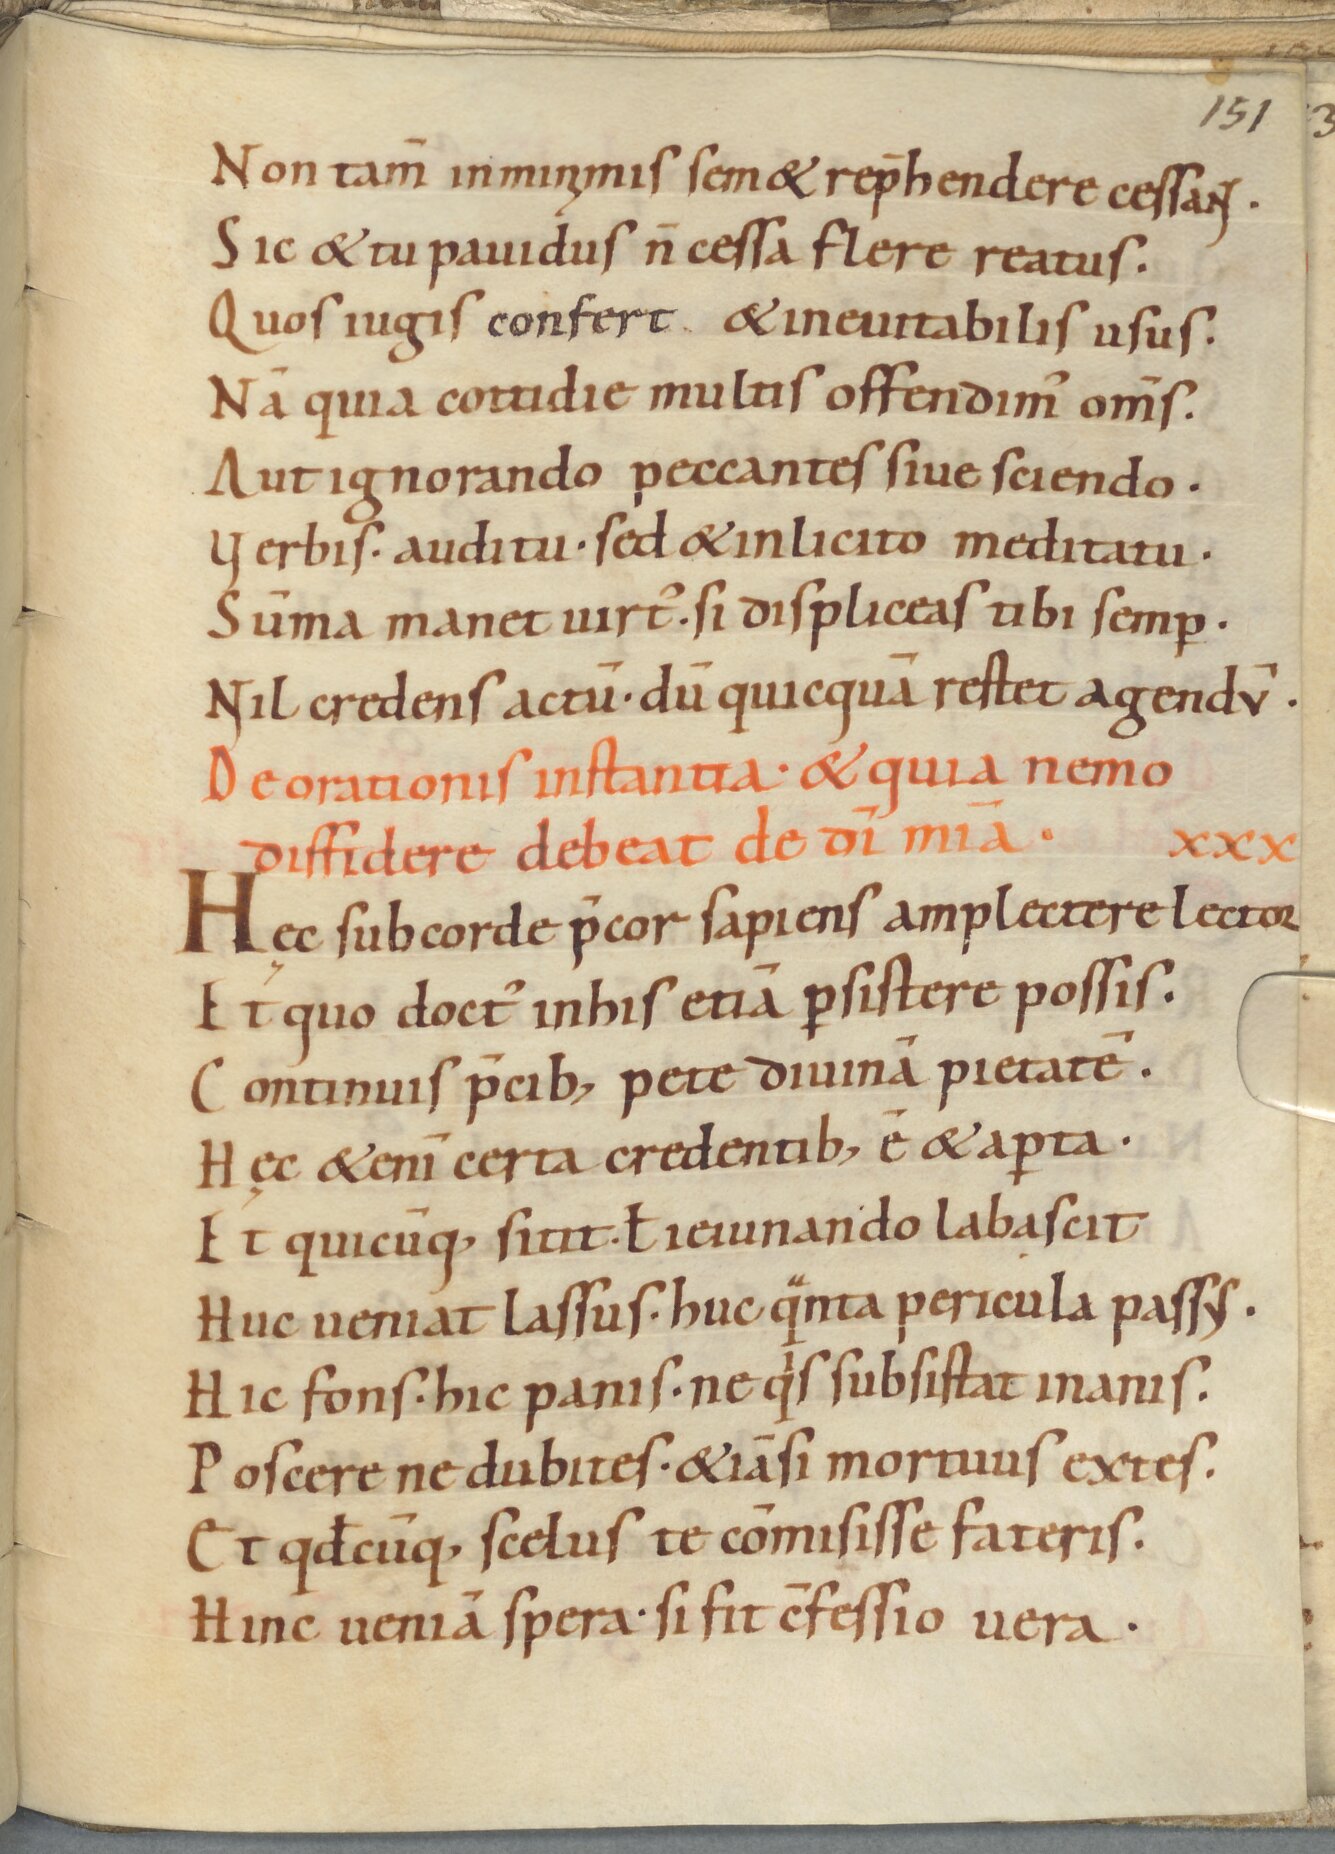 151
Non tam̄ inminimis sem& rep̄hendere cessans.
Sic & tu pauidus n̄ cessa flere reatus.
Quos iugis confert & ineuitabilis usus.
Nā quia cottidie multis offendim᾽ om̄s.
Aut ignorando peccantes siue sciendo.
Verbis· auditu· sed & inlicito meditatu.
Sūma manet uirt᾽· si displiceas tibi semꝑ.
Nil credens actū· dū quicq̄uā restet agendv̄.
De orationis instantia· & quia nemo
diffidere debeat de dī mīa· xxx
Hęc sub corde p̄cor sapiens amplectere lector
Et quo doct᾽ in his etiā ꝑsistere possis.
Continuis p̄cib; pete diuinā pietatē.
Hęc &enī certa credentib; ē & aꝑta.
Et quicūq; sitit· ł ieiunando labascit
Huc ueniat lassus· huc qͣnta pericula passus.
Hic fons· hic panis· ne qͥs subsistat inanis.
Poscere ne dubites· & iā si mortuus extes.
Et qđcūq; scelus te cōmisisse fateris.
Hinc ueniā spera· si fit c̄fessio uera.